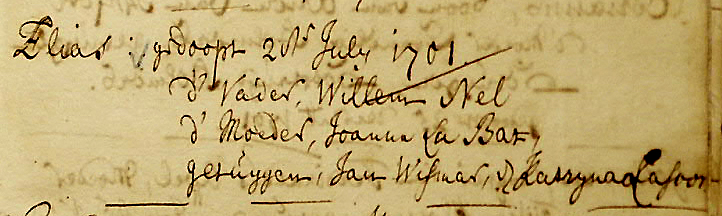 Elias: gedoopt 2 July 1701.
d' Vader, Willem Nel
d' Moeder, Joanna La Bat,
getuygen, Jan Wismar, Katryna